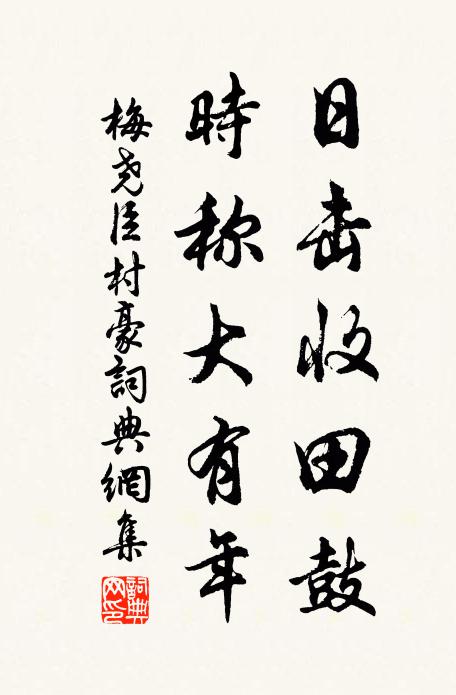 日击收田鼓
時称大有年
梅尧臣村豪詞典網集
詞典网印